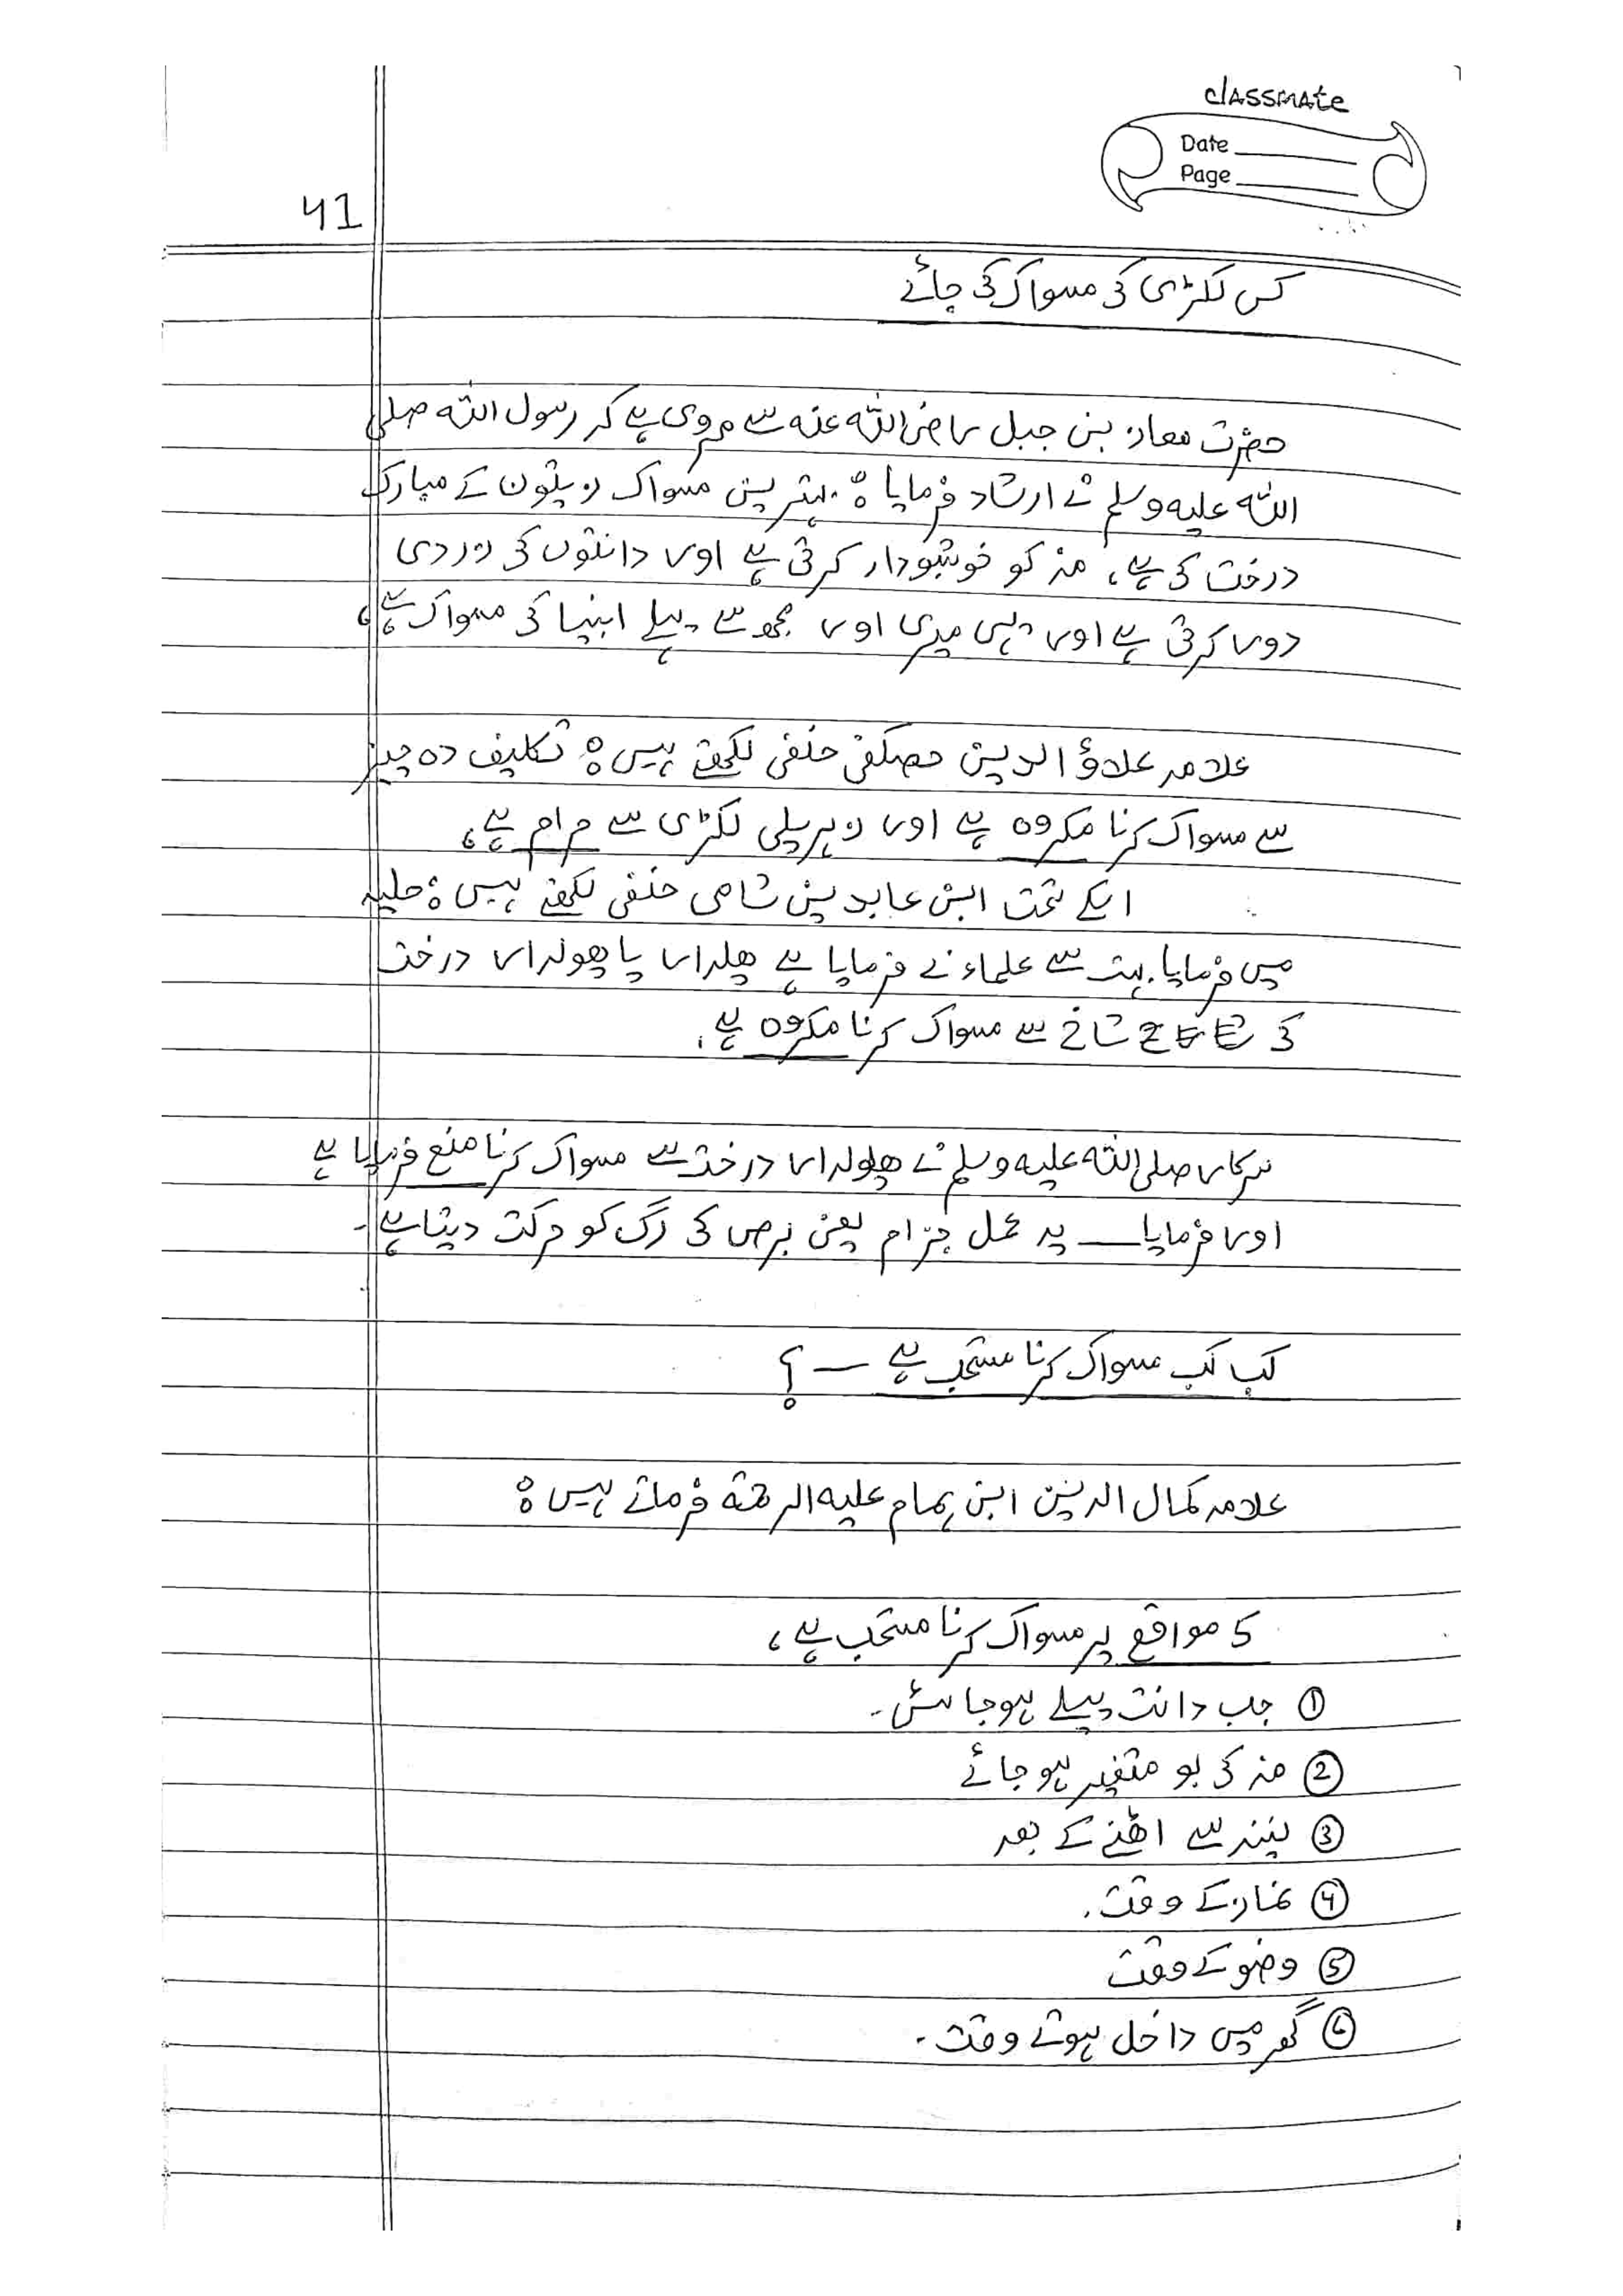 classmate
Date
Page
41
کس لکڑی کی مسواک کی جائے
حضرت معاذ بن جبل رضی اللہ عنہ سے مروی ہے کہ رسول اللہ صلی
اللہ علیہ وسلم نے ارشاد فرمایا : بہترین مسواک زیتون کے مبارک
درخت کی ہے، منہ کو خوشبودار کرتی ہے اور دانتوں کی زردی
دور کرتی ہے اور یہی میری اور مجھ سے پہلے انبیا کی مسواک ہے،
علامہ علاؤ الدین حصکفی حنفی لکھتے ہیں : تکلیف دہ چیز
سے مسواک کرنا مکروہ ہے اور زہریلی لکڑی سے حرام ہے،
اسکے تحت ابن عابدین شامی حنفی لکھتے ہیں : حلیہ
میں فرمایا بہت سے علماء نے فرمایا ہے پھلدار یا پھولدار درخت
کی شاخ سے مسواک کرنا مکروہ ہے.
سرکار صلی اللہ علیہ وسلم نے پھولدار درخت سے مسواک کرنا منع فرمایا ہے
اور فرمایا — یہ عمل جزام یعنی برص کی رگ کو حرکت دیتا ہے -
کب کب مسواک کرنا مستحب ہے — ؟
علامہ کمال الدین ابن ہمام علیہ الرحمۃ فرماتے ہیں :
5 مواقع پر مسواک کرنا مستحب ہے،
① جب دانت پیلے ہو جائیں -
② منہ کی بو متغیر ہو جائے
③ نیند سے اٹھنے کے بعد
④ نماز کے وقت.
⑤ وضو کے وقت
⑥ گھر میں داخل ہوتے وقت -